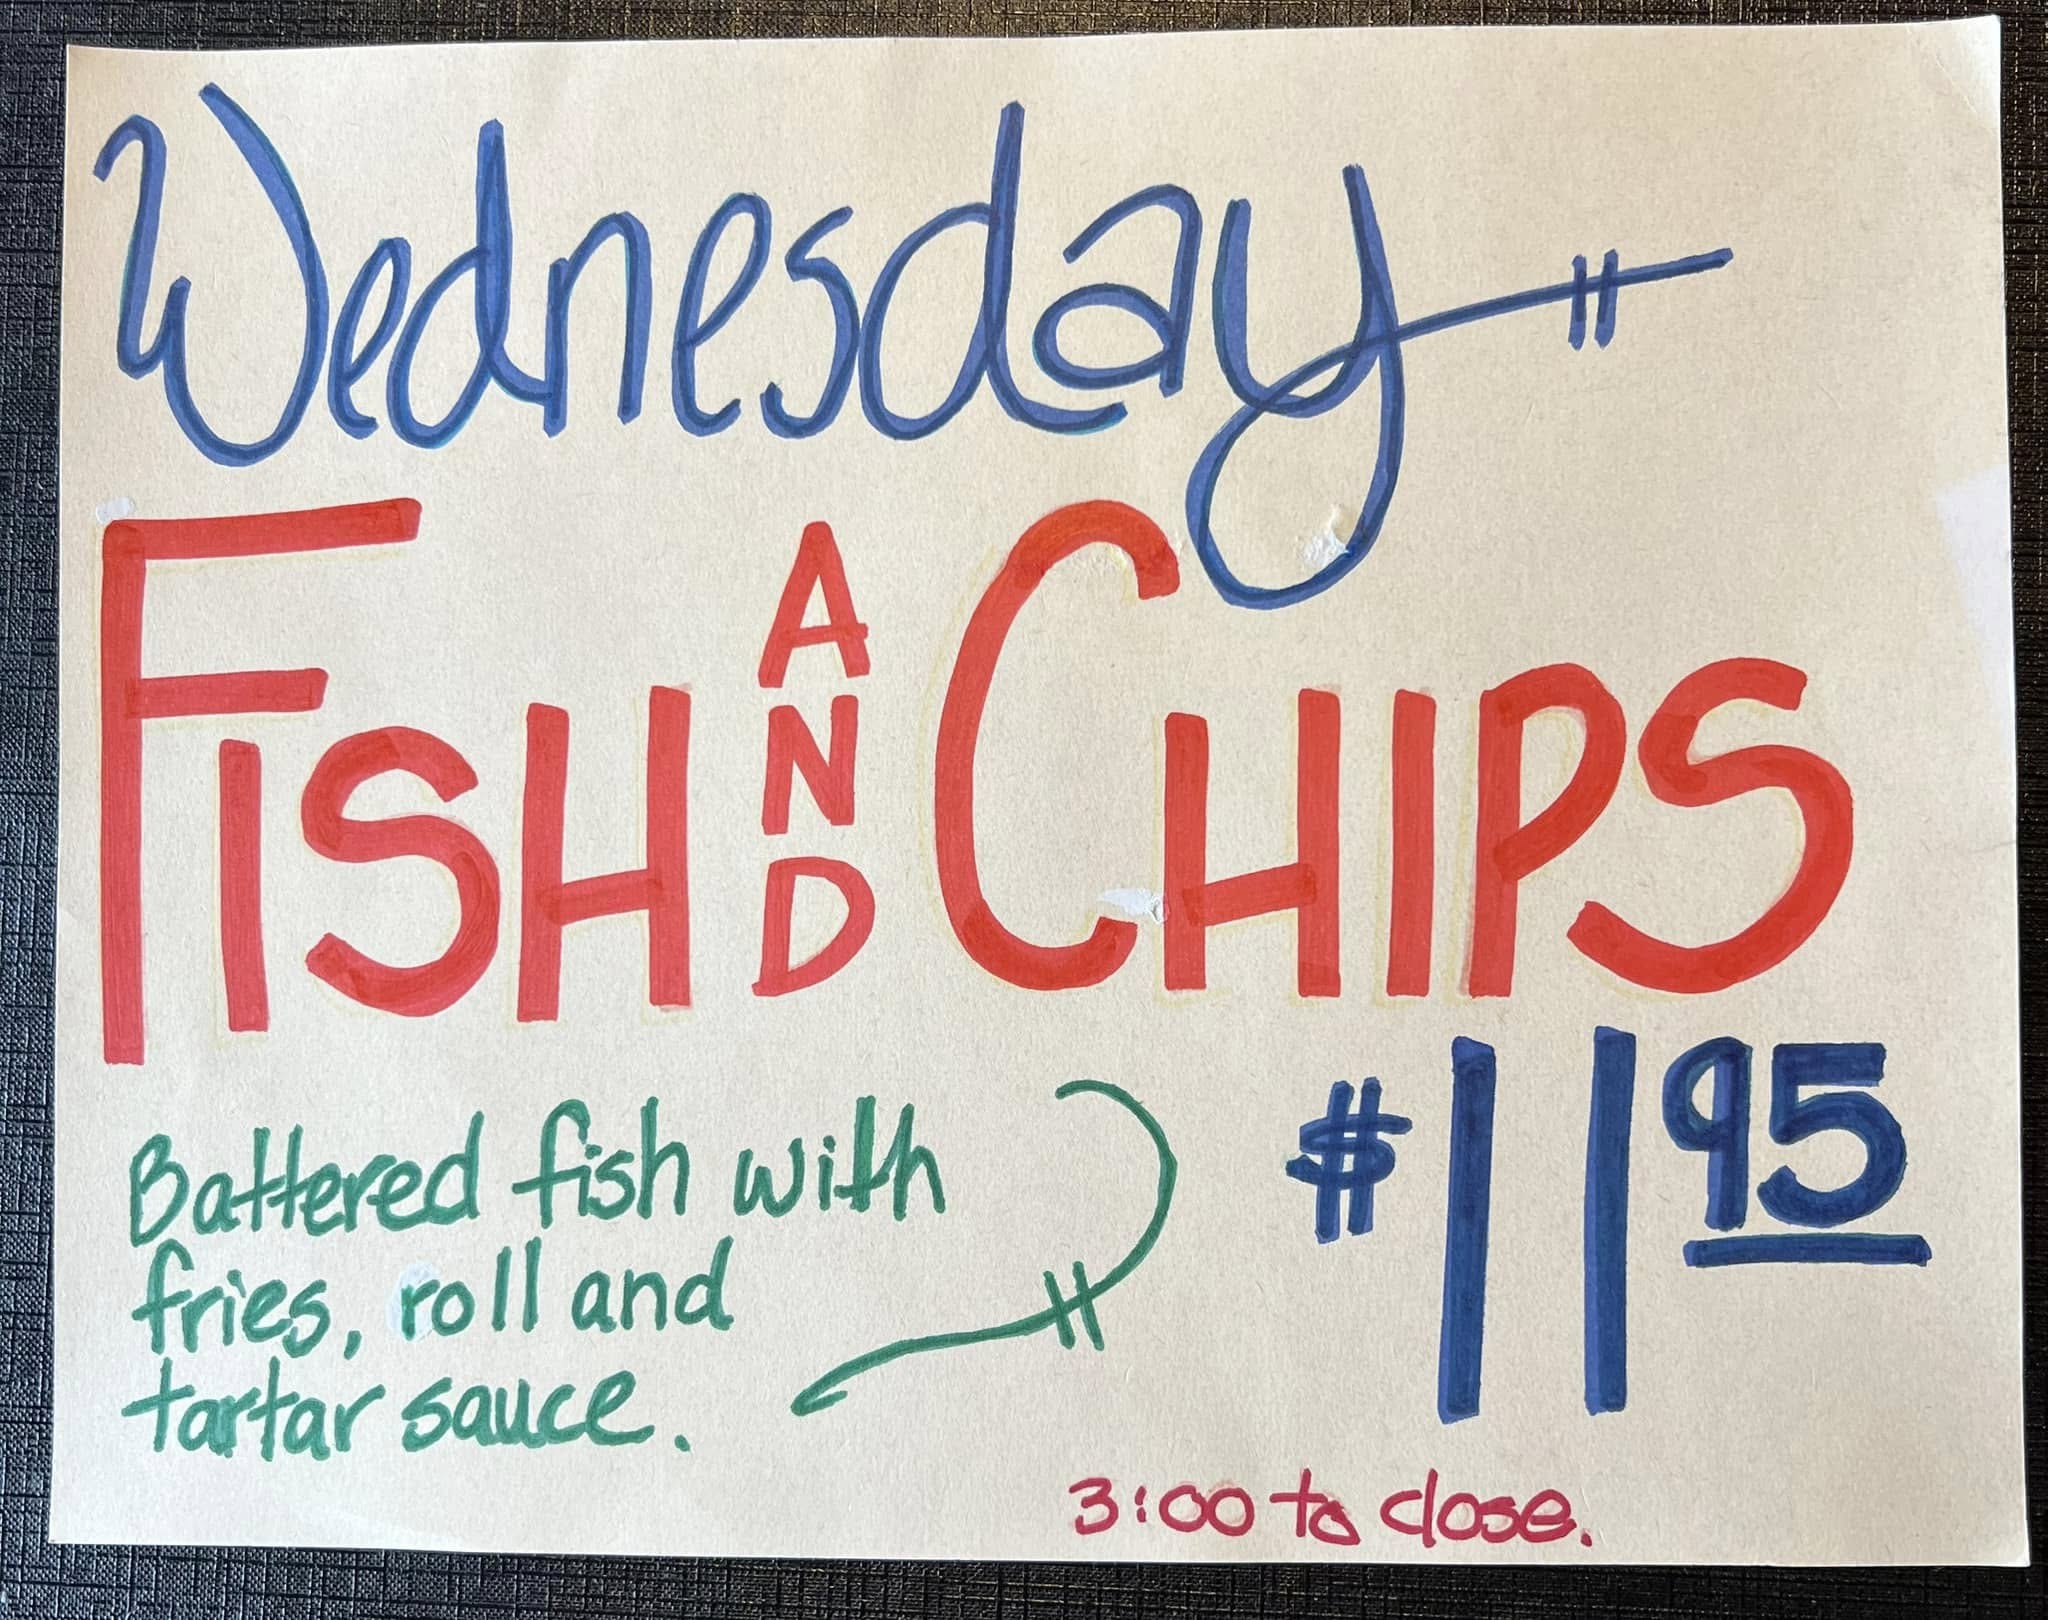 Wednesday
FISH AND CHIPS
Battered fish with
fries, roll and
tartar sauce.
$11 95
3:00 to close.